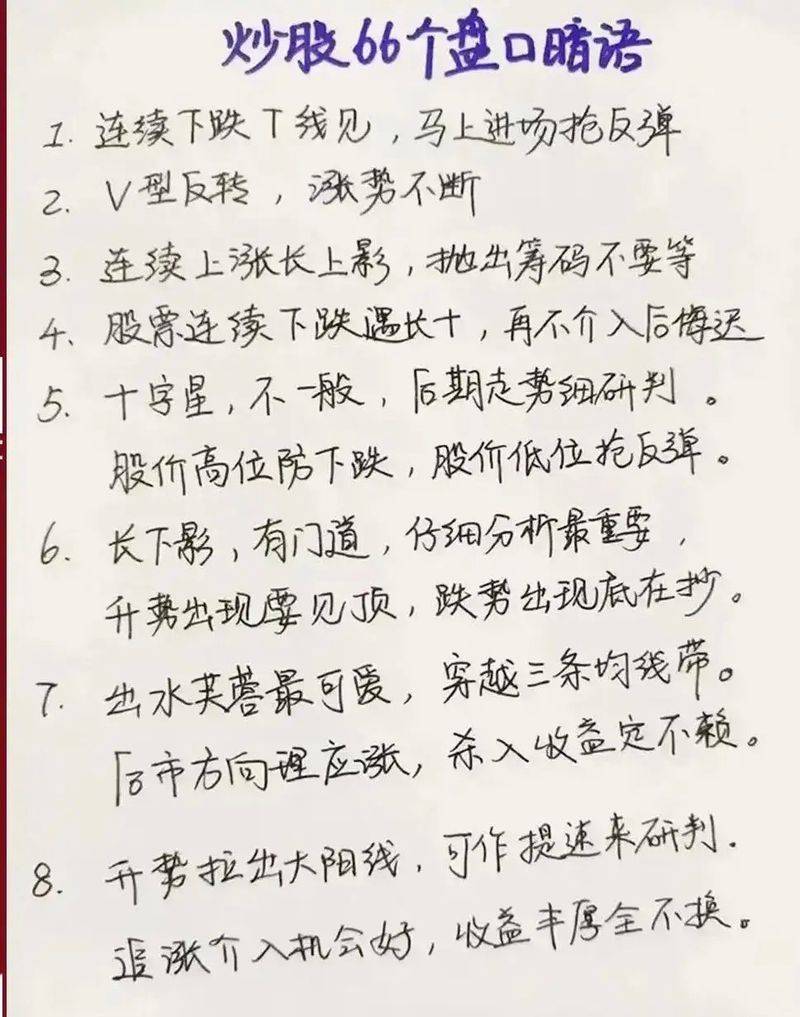 炒股66个盘口暗语
1. 连续下跌T线见，马上进场抢反弹
2. V型反转，涨势不断
3. 连续上涨长上影，抛出筹码不要等
4. 股票连续下跌遇长十，再不介入后悔迟
5. 十字星，不一般，后期走势细研判。
股价高位防下跌，股价低位抢反弹。
6. 长下影，有门道，仔细分析最重要，
升势出现要见顶，跌势出现底在抄。
7. 出水芙蓉最可爱，穿越三条均线带。
后市方向理应涨，杀入收益定不赖。
8. 升势拉出大阳线，可作提速来研判.
追涨介入机会好，收益丰厚全不换。